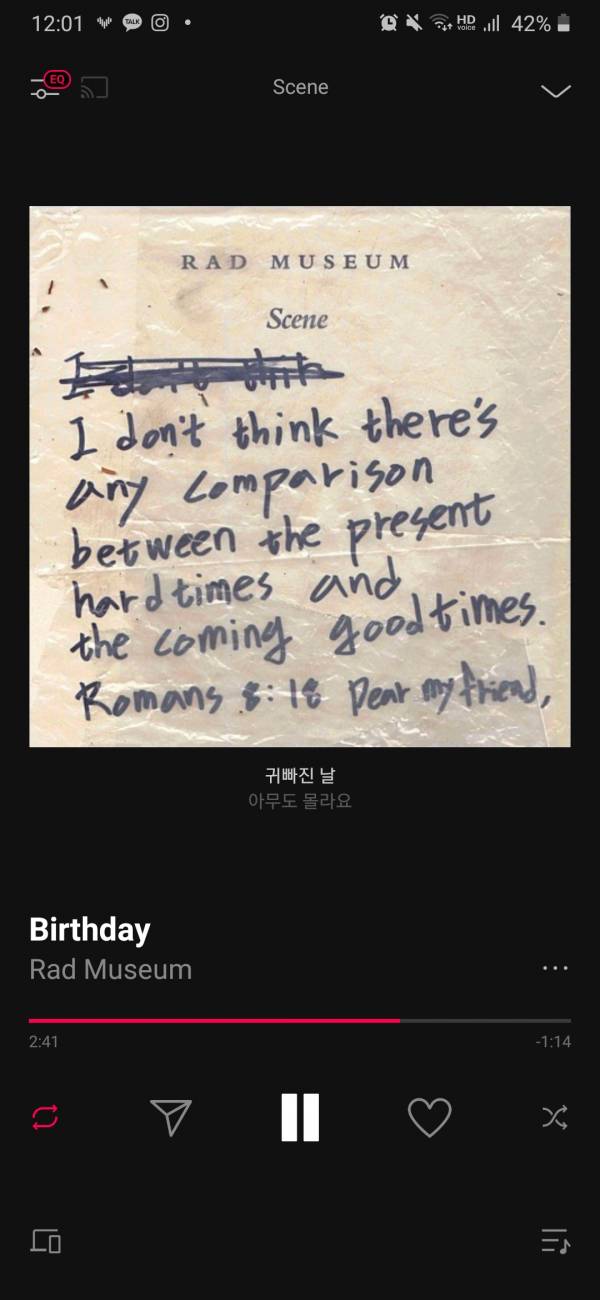 12:01 TALK HD voice 42%
EQ Scene
RAD MUSEUM
Scene
I don't think
I don't think there's
any comparison
between the present
hard times and
the coming good times.
Romans 8:18 Dear my friend,
귀빠진 날
아무도 몰라요
Birthday
Rad Museum
2:41 -1:14